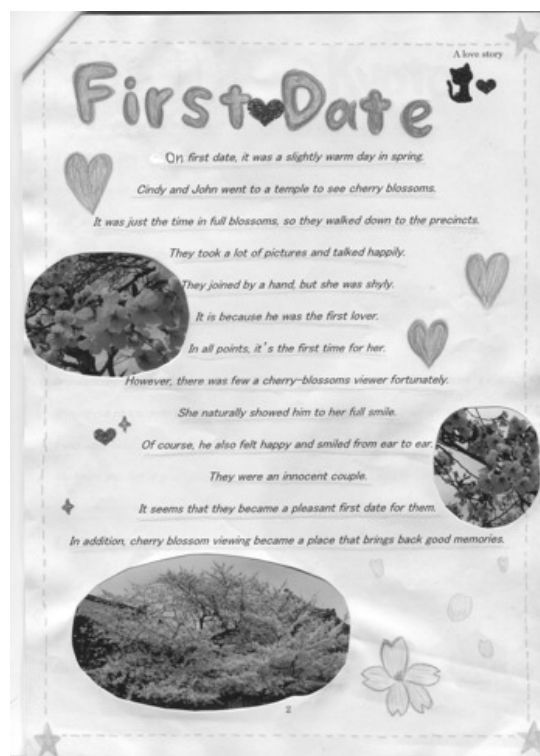 A love story
First Date
On first date, it was a slightly warm day in spring.
Cindy and John went to a temple to see cherry blossoms.
It was just the time in full blossoms, so they walked down to the precincts.
They took a lot of pictures and talked happily.
They joined by a hand, but she was shyly.
It is because he was the first lover.
In all points, it's the first time for her.
However, there was few a cherry-blossoms viewer fortunately.
She naturally showed him to her full smile.
Of course, he also felt happy and smiled from ear to ear.
They were an innocent couple.
It seems that they became a pleasant first date for them.
In addition, cherry blossom viewing became a place that brings back good memories.
2